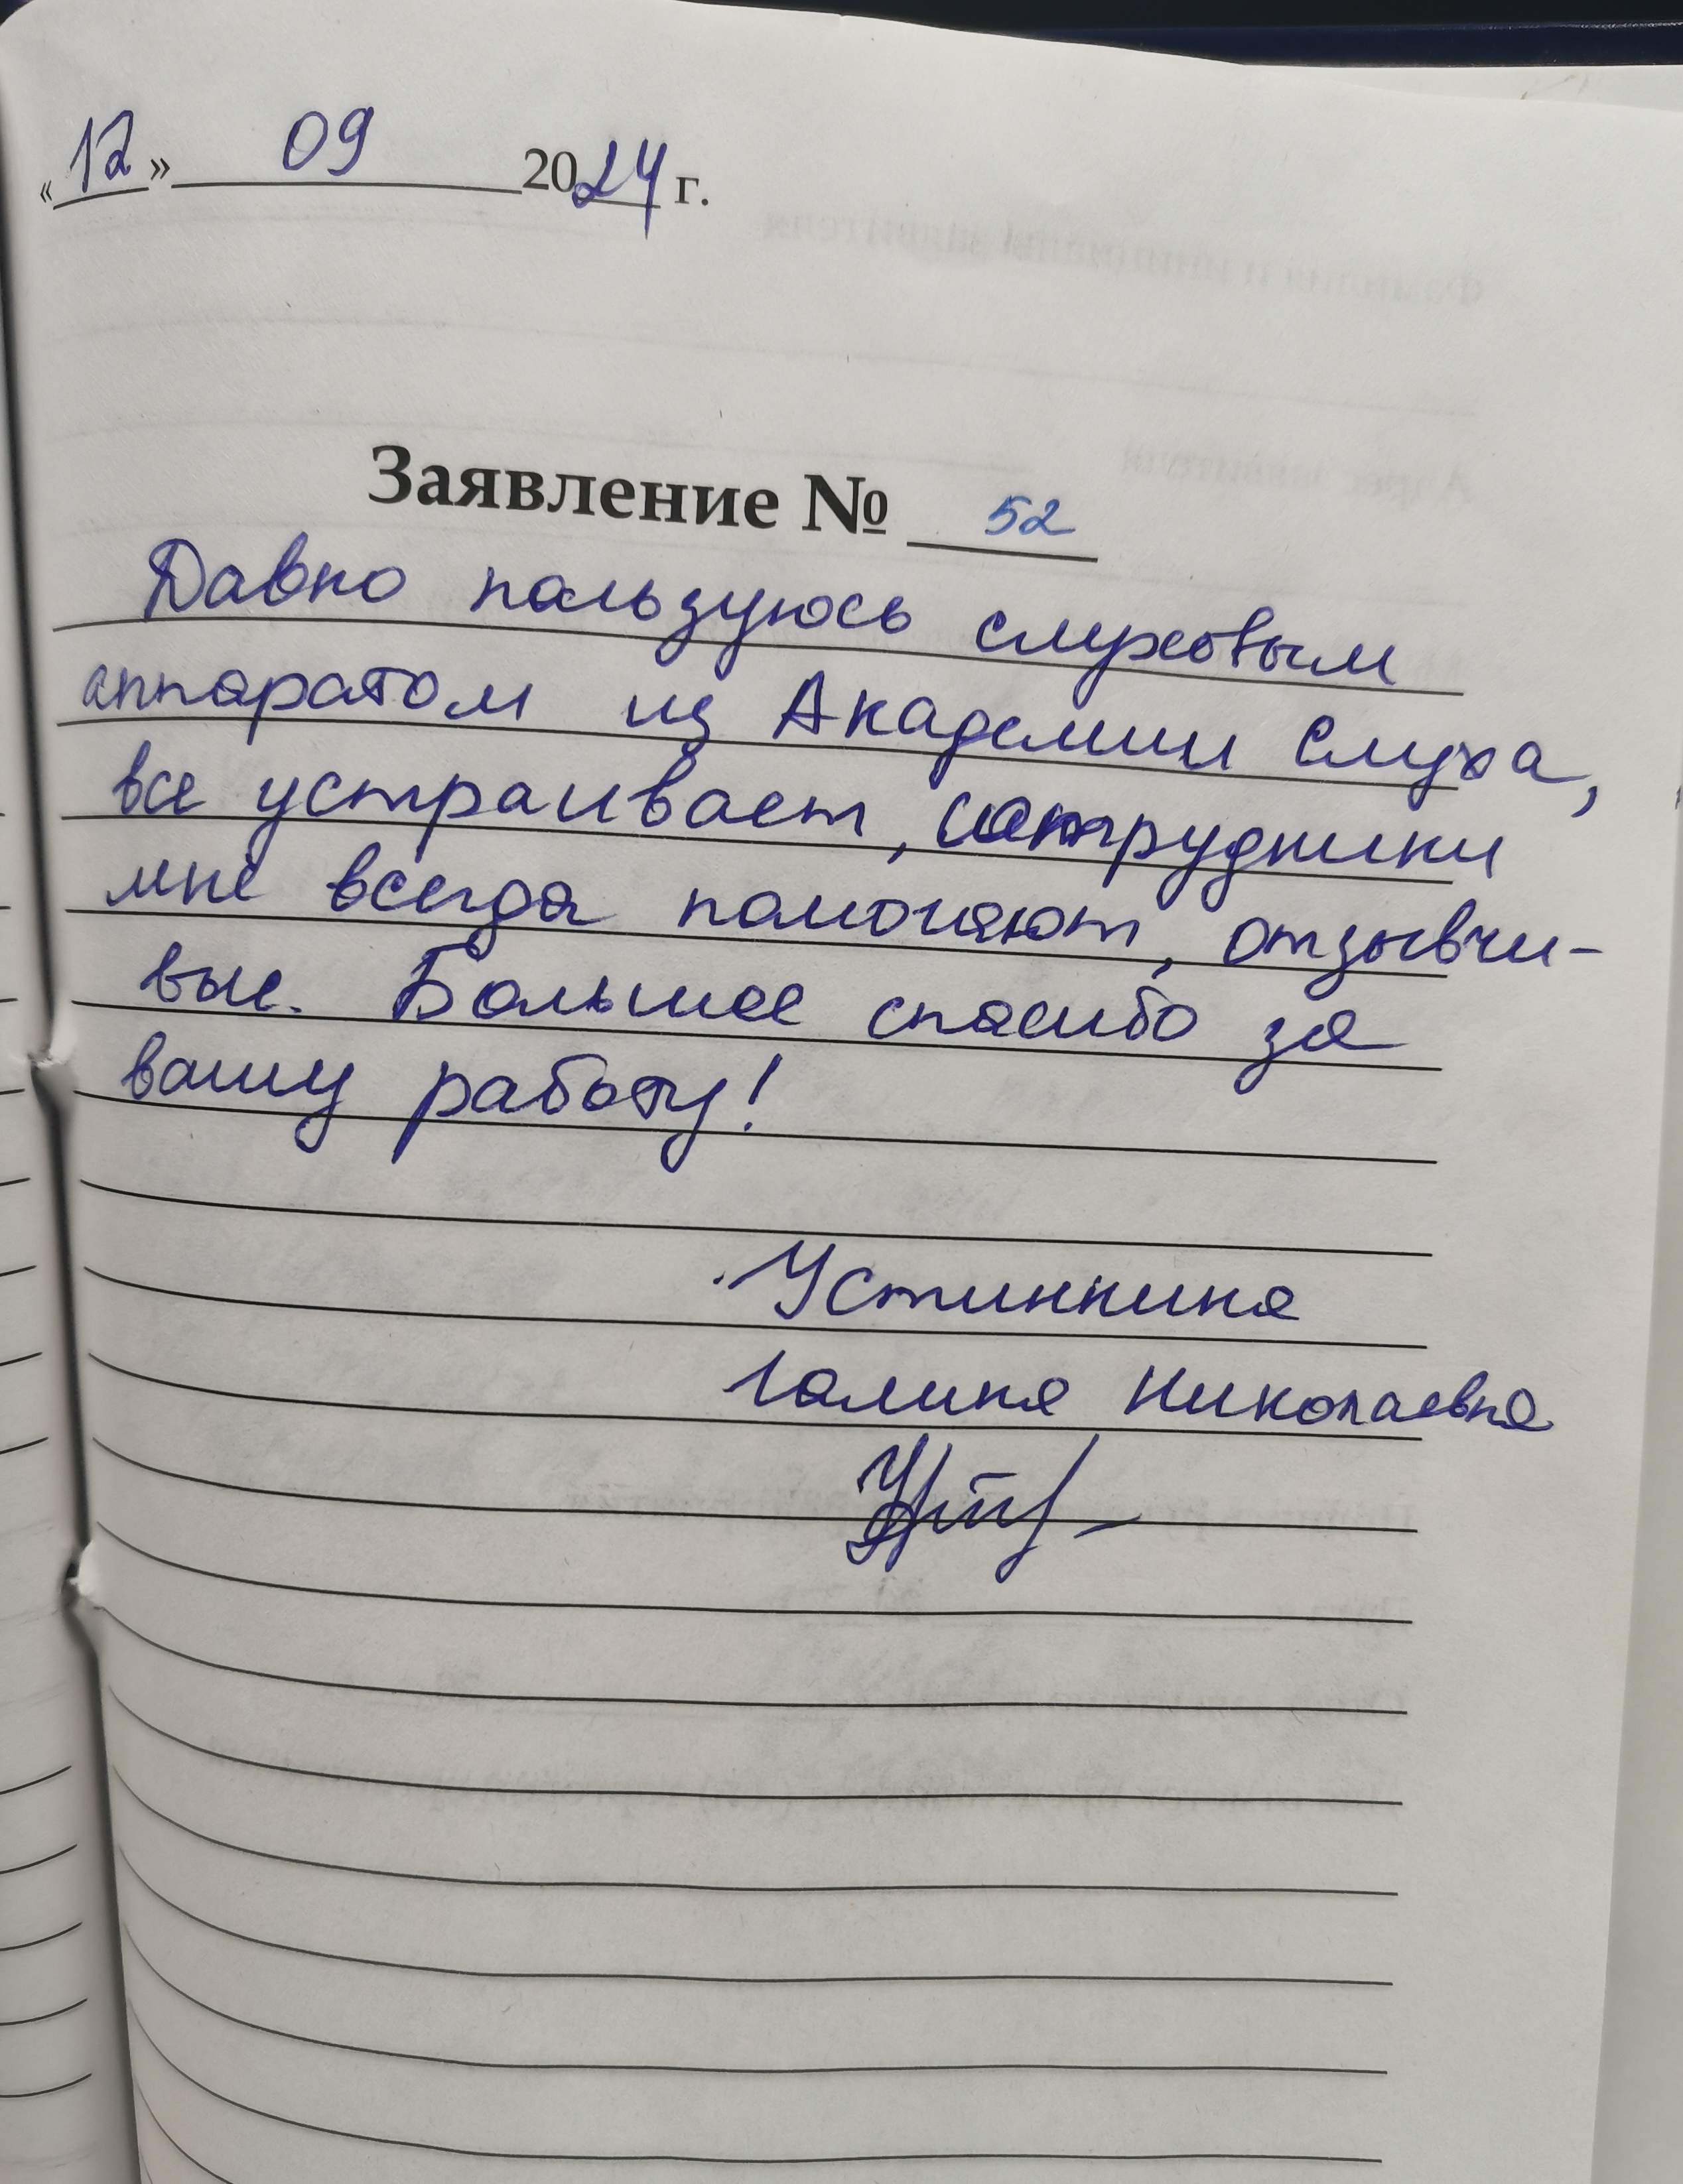 «12» 09 2024 г.
Заявление № 52
Давно пользуюсь слуховым
аппаратом из Академии Слуха,
все устраивает, сотрудники
мне всегда помогают, отзывчи-
вые. Большое спасибо за
вашу работу!
Устинкина
Галина Николаевна